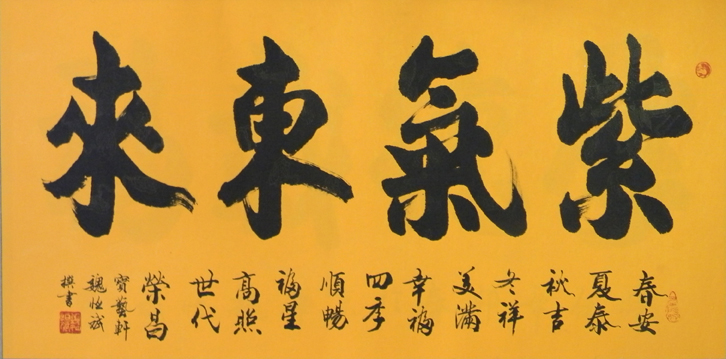 紫氣東來
春安
夏泰
秋吉
冬祥
美滿
幸福
四季
順暢
福星
高照
世代
榮昌
寶藝軒
魏恆斌
撰書